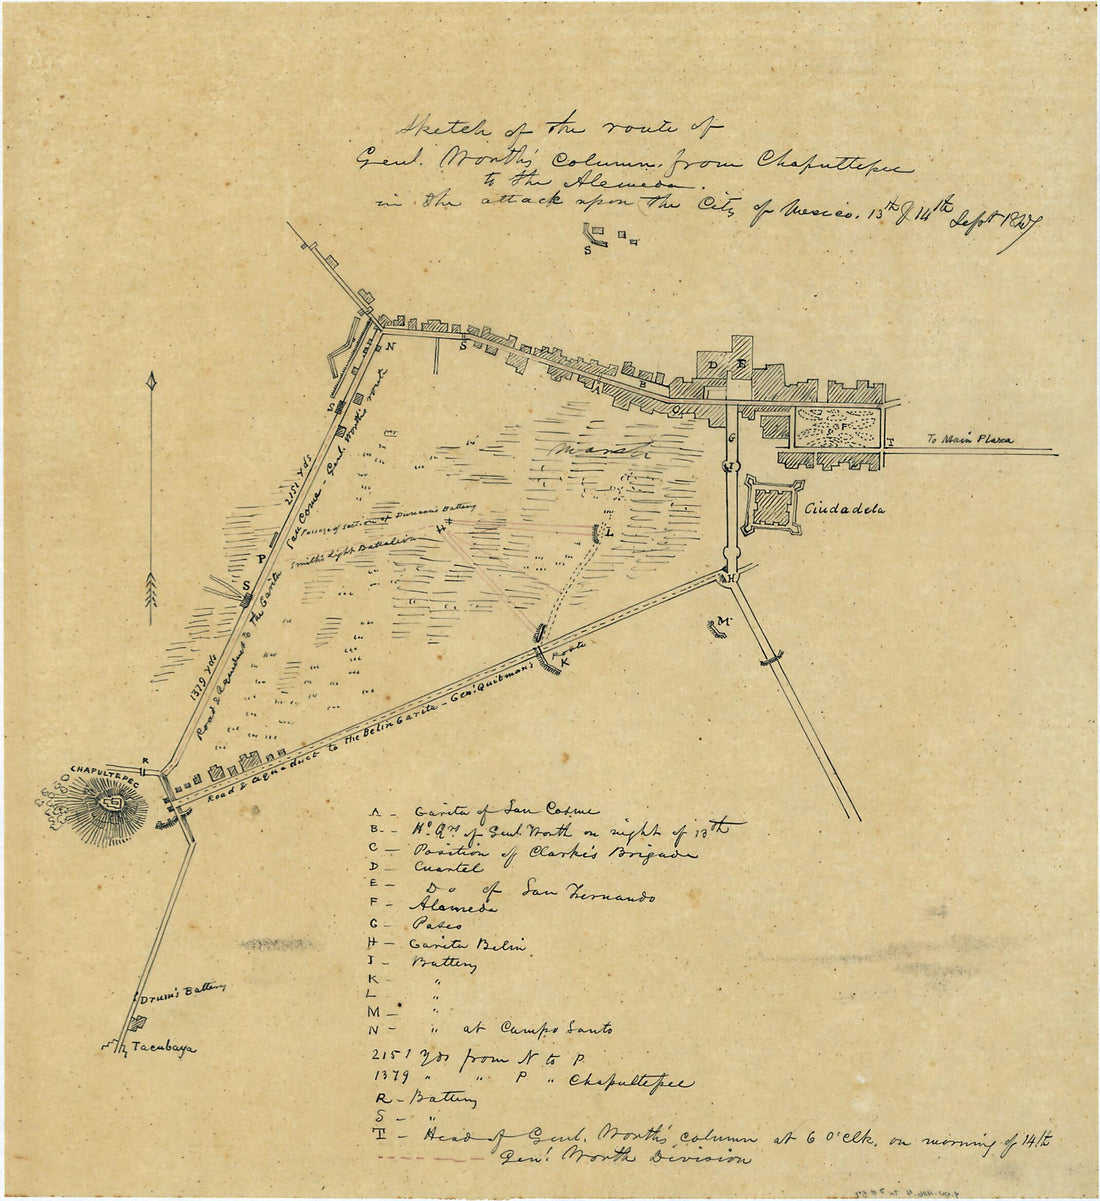 Sketch of the route of
Genl. Worth's Column, from Chapultepec
to the Alameda.
in the attack upon the City of Mexico. 13th & 14th Sept 1847
S
N
S
A
B
C
D
E
F
T
To Main Plaza
G
J
Ciudadela
H
M
marsh
S
2151 yds
San Cosme - Genl. Worth's route
Passage of section of Duncan's Battery
Smith's Light Battalion
H
L
P
S
K
1379 yds
Road & Aqueduct to the Garita
Road & aqueduct to the Belin Garita - Genl Quitman's Route
R
CHAPULTEPEC
Drum's Battery
Tacubaya
A - Garita of San Cosme
B - Hd. Qrs of Genl. Worth on night of 13th
C - Position of Clarke's Brigade
D - Cuartel
E - Do of San Fernando
F - Alameda
G - Paseo
H - Garita Belin
J - Battery
K - "
L - "
M - "
N - " at Campo Santo
2151 yds from N to P
1379 " " P " Chapultepec
R - Battery
S - "
T - Head of Genl. Worth's column at 6 O'Clk. on morning of 14th
------ Genl Worth Division